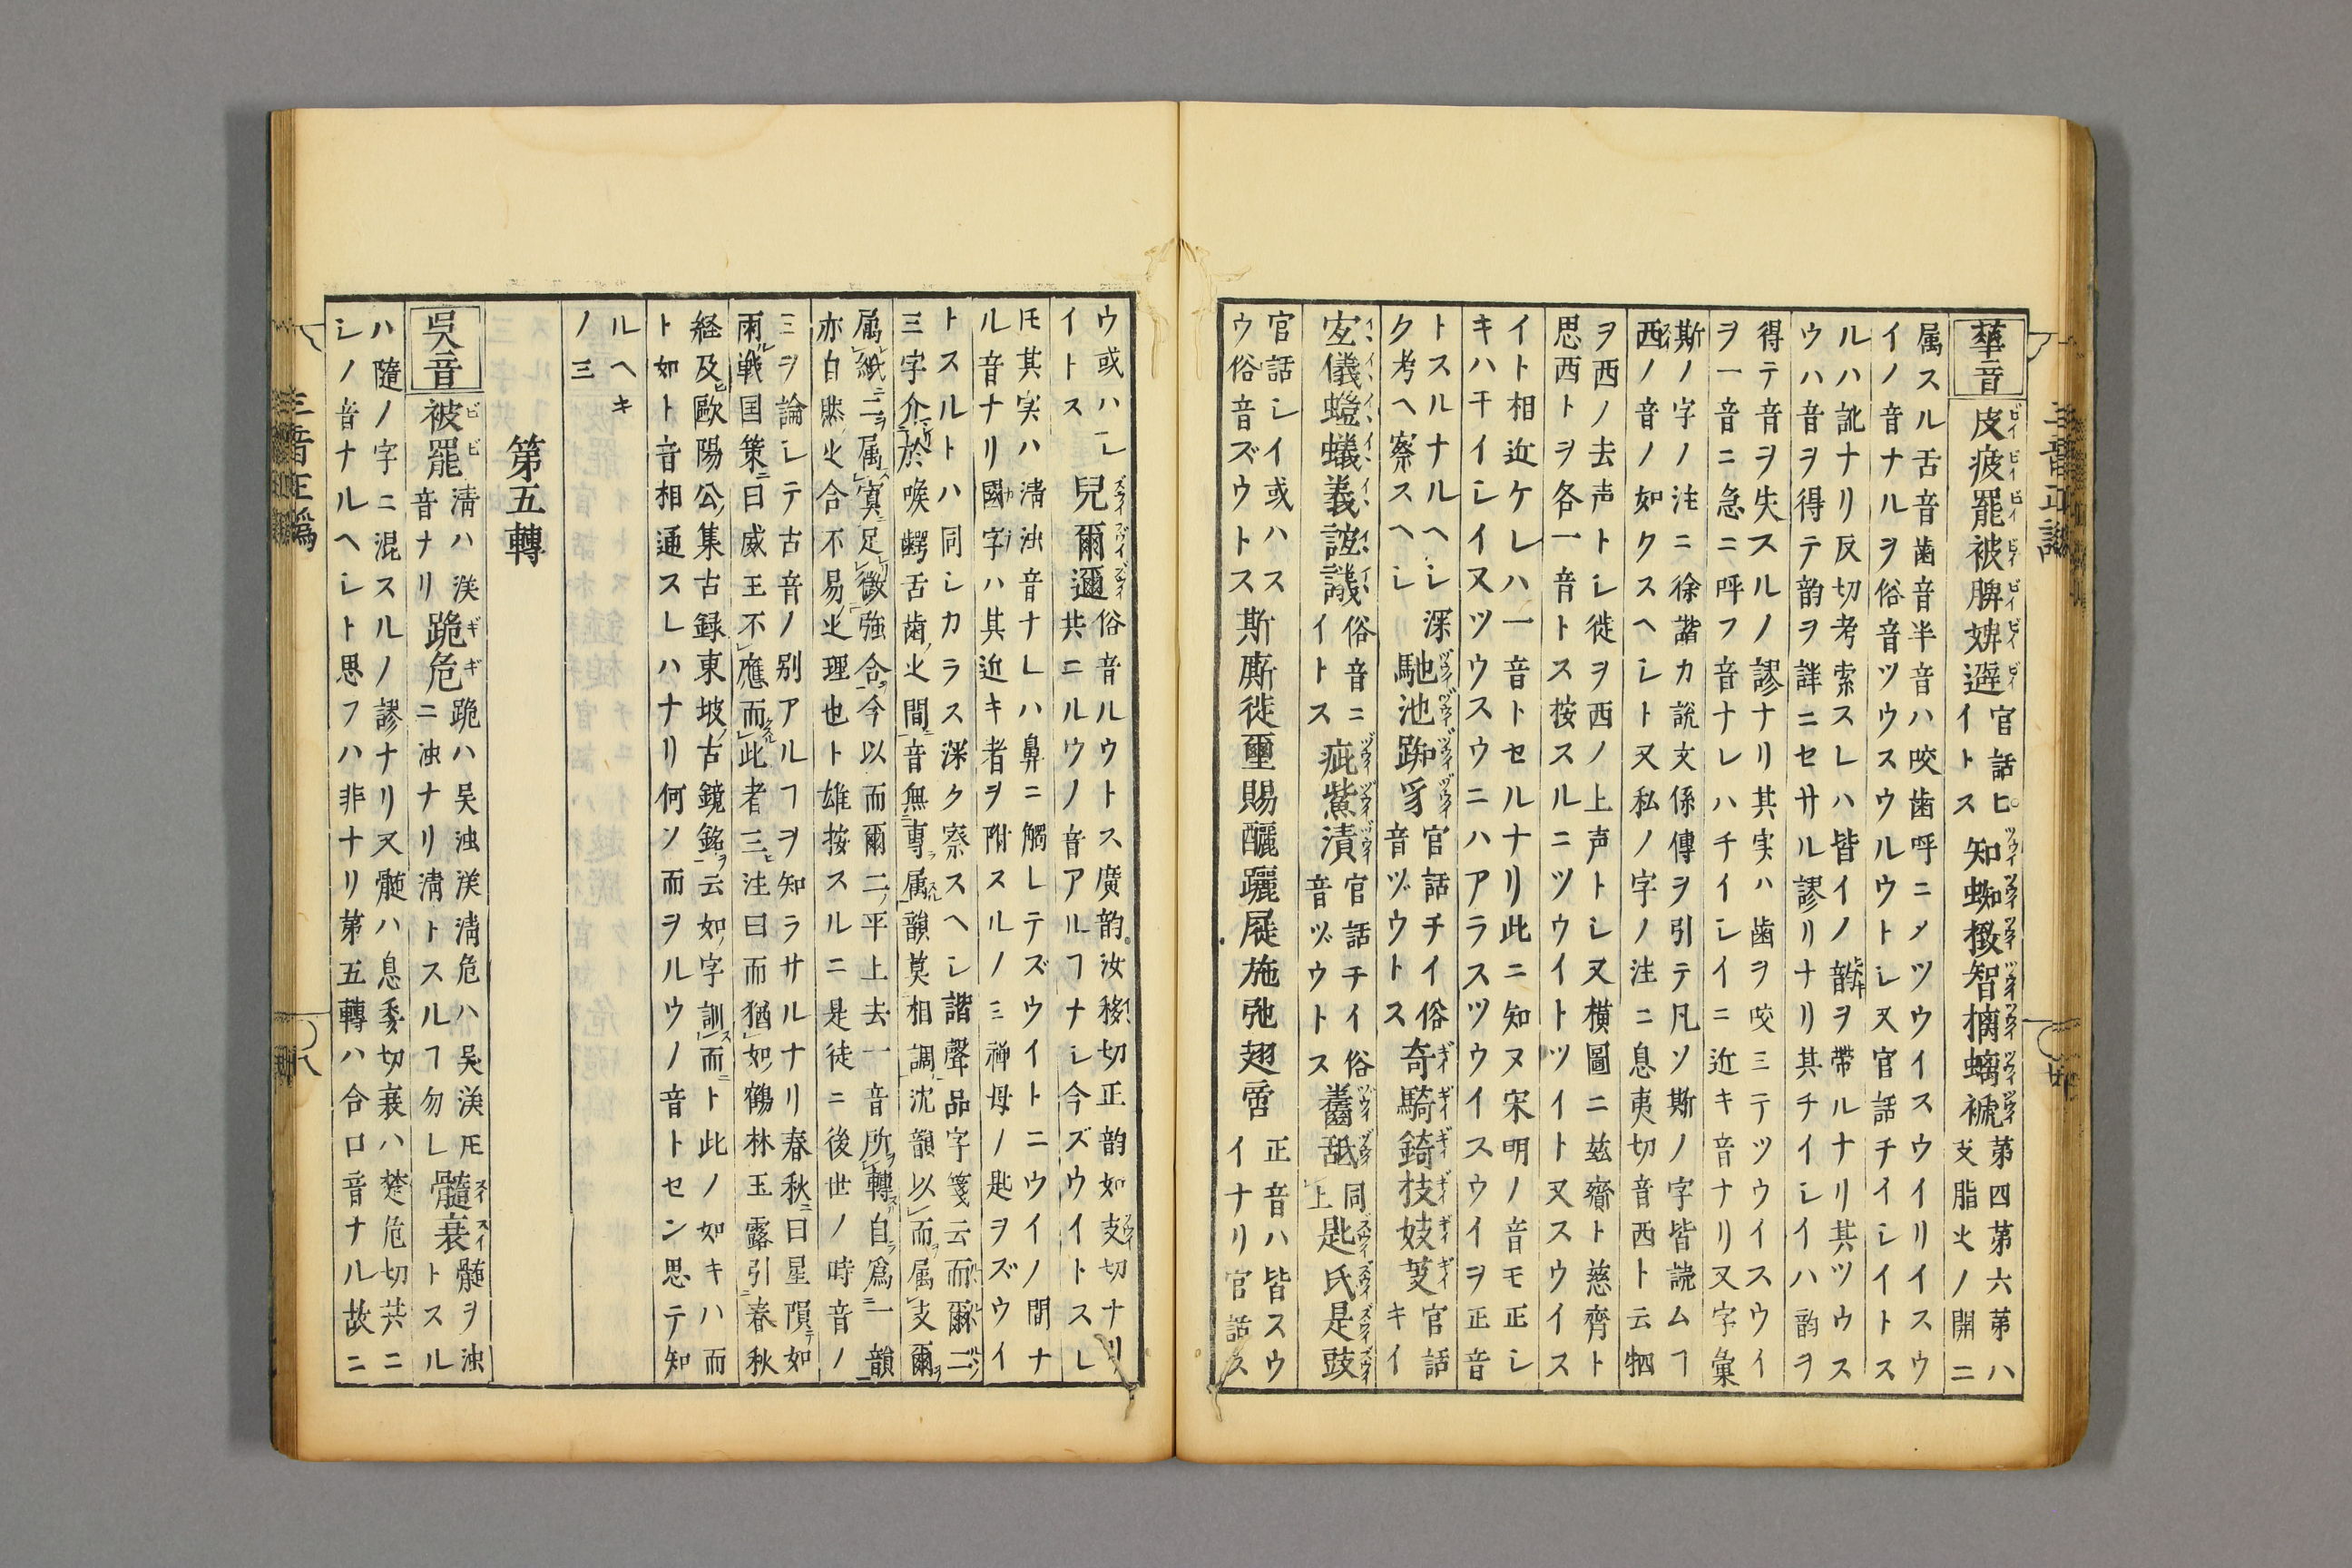 華音 皮疲罷被脾婢避 官話ヒ°イトス 知蜘㨖智摛螭褫 第四第六第八支脂火ノ開ニ
属スル舌音歯音半音ハ咬歯呼ニメツウイスウイリイスウ
イノ音ナルヲ俗音ツウスウルウトシ又官話チイシイトス
ルハ訛ナリ反切考索スレハ皆イノ韻ヲ帶ルナリ其ツウス
ウハ音ヲ得テ韵ヲ詳ニセサル謬リナリ其チイシイハ韵ヲ
得テ音ヲ失スルノ謬ナリ其実ハ歯ヲ咬ミテツウイスウイ
ヲ一音ニ急ニ呼フ音ナレハチイシイニ近キ音ナリ又字彙
斯ノ字ノ注ニ徐諧カ説文係傳ヲ引テ凡ソ斯ノ字皆読ムヿ
西ノ音ノ如クスヘシト又私ノ字ノ注ニ息夷切音西ト云牺
ヲ西ノ去声トシ徙ヲ西ノ上声トシ又横圖ニ玆齎ト慈齊ト
思西トヲ各一音トス按スルニツウイトツイト又スウイス
イト相近ケレハ一音トセルナリ此ニ知ヌ宋明ノ音モ正シ
キハ干イシイ又ツウスウニハアラスツウイスウイヲ正音
トスルナルヘシ深ク考ヘ察スヘシ 馳池踟豸 官話チイ俗音ヅウトス 奇騎錡枝妓芰 官話キイ
宐儀螘蟻義誼議 俗音ニイトス 疵紫漬 官話チイ俗音ヅウトス 齹舐 同上 匙氏是豉
官話シイ或ハスウ俗音ズウトス 斯廝徙璽賜釃躧屣施弛翅啻 正音ハ皆スウイナリ官話ス
ウ或ハシイトス 兒爾邇 俗音ルウトス廣韵汝移切正韵如支切ナリ共ニルウノ音アルヿナシ今ズウイトスレ
𪜈其実ハ淸浊音ナレハ鼻ニ觸レテズウイトニウイノ間ナ
ル音ナリ國字ハ其近キ者ヲ附スルノミ禅母ノ匙ヲズウイ
トスルトハ同シカラス深ク察スヘシ諧聲品字箋云而爾二
三字介於喉齶舌歯火間音無專属韻莫相調沈韻以而属支爾
属紙二属寘足徴強合今以而爾二平上去一音所轉自爲一韻
亦自然火合不易火理也ト雄按スルニ是徒ニ後世ノ時音ノ
ミヲ論シテ古音ノ別アルヿヲ知ラサルナリ春秋曰星隕如
雨戦国策曰威王不應而此者三注曰而猶如鶴林玉露引春秋
経及歐陽公集古録東坡古鏡銘云如字訓而ト此ノ如キハ而
ト如ト音相通スレハナリ何ソ而ヲルウノ音トセン思テ知
ルヘキノミ
第五轉
呉音 被罷 淸ハ漢音ナリ 跪危 跪ハ呉浊漢淸危ハ呉漢𪜈ニ浊ナリ淸トスルヿ勿レ 髓衰 髄ヲ浊トスル
ハ隨ノ字ニ混スルノ謬ナリ又髄ハ息委切衰ハ楚危切共ニ
シノ音ナルヘシト思フハ非ナリ第五轉ハ合口音ナル故ニ
三音正譌